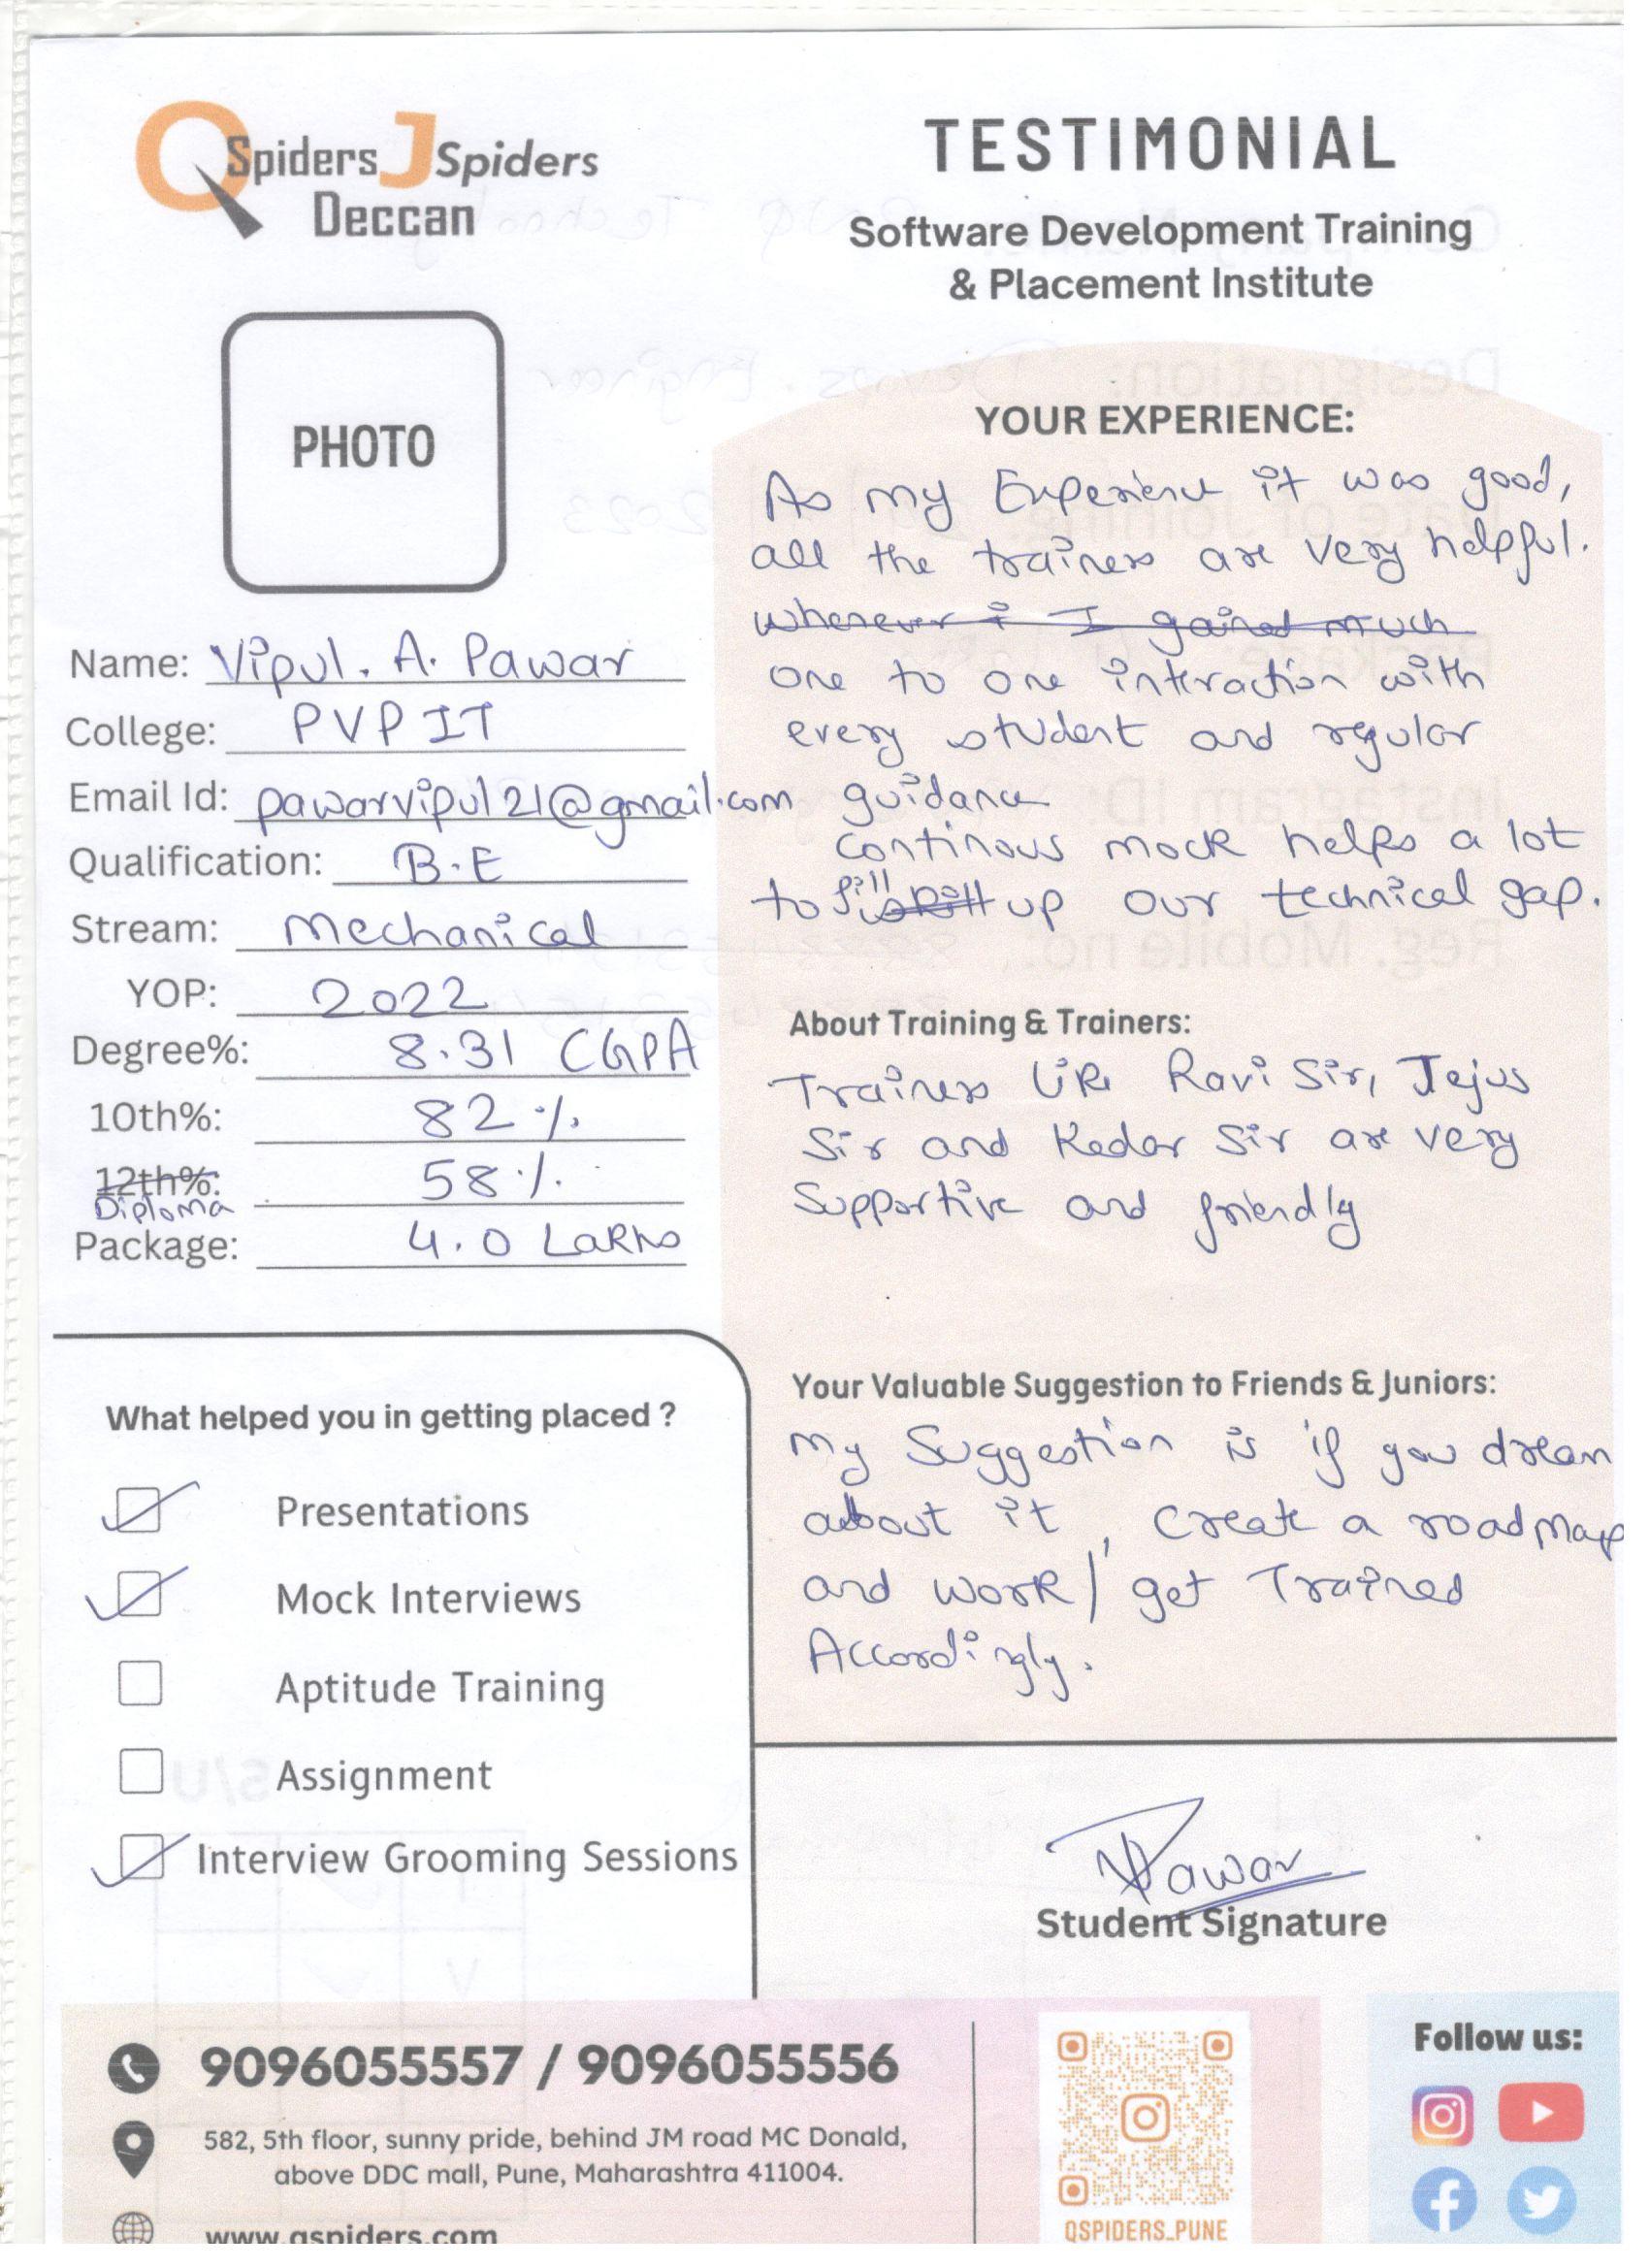 QSpiders JSpiders
Deccan
TESTIMONIAL
Software Development Training
& Placement Institute
PHOTO
Name: Vipul. A. Pawar
College: PVPIT
Email Id: pawarvipul21@gmail.com
Qualification: B.E
Stream: Mechanical
YOP: 2022
Degree%: 8.31 CGPA
10th%: 82%
12th%: 58%
Diploma
Package: 4.0 Lakhs
What helped you in getting placed ?
Presentations
Mock Interviews
Aptitude Training
Assignment
Interview Grooming Sessions
YOUR EXPERIENCE:
As my Experience it was good,
all the trainers are very helpful.
Whenever i I gained much
one to one interaction with
every student and regular
guidance
continous mock helps a lot
to fill up our technical gap.
About Training & Trainers:
Trainers like Ravi Sir, Tejus
Sir and Kedar Sir are very
Supportive and friendly
Your Valuable Suggestion to Friends & Juniors:
My Suggestion is if you dream
about it, create a roadmap
and work/ get Trained
Accordingly.
Pawar
Student Signature
9096055557 / 9096055556
582, 5th floor, sunny pride, behind JM road MC Donald,
above DDC mall, Pune, Maharashtra 411004.
www.qspiders.com
QSPIDERS_PUNE
Follow us: